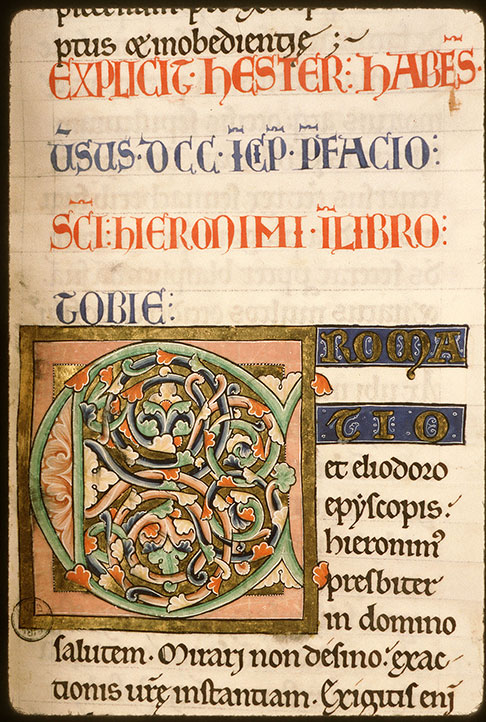 ptus & inobedientię ;~
EXPLICIT · HESTER : HABE̅S ·
U̅SUS · DCC · I̅CI̅P · P̅FACIO :
SC̅I · HIERONIMI · I̅ LIBRO :
TOBIE :
CROMA
TIO
et eliodoro
epẏscopis :
hieronim᷒
presbiter
in domino
salutem · Mirari non desino : exac-
tionis ur̅ę instantiam · Exigitis eni̅